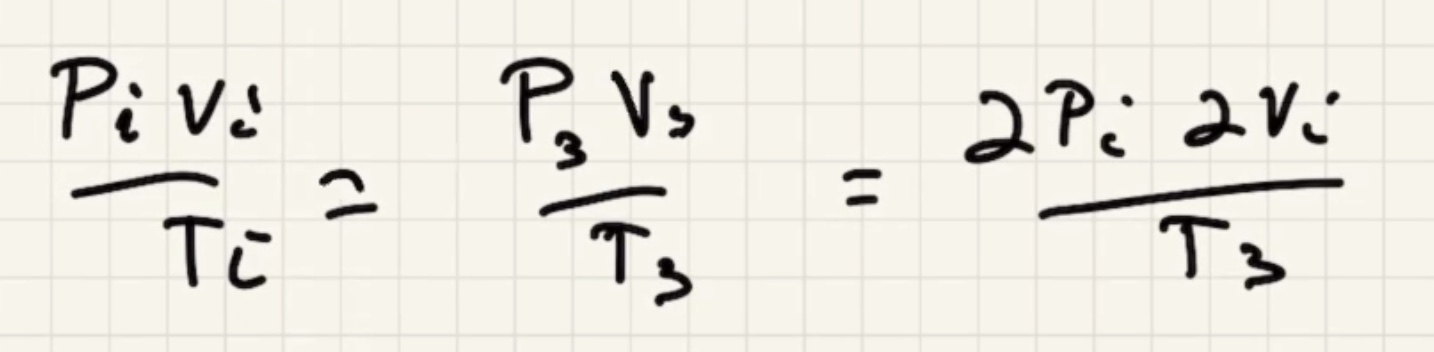 \frac{P_i V_i}{T_i} = \frac{P_3 V_3}{T_3} = \frac{2P_i 2V_i}{T_3}